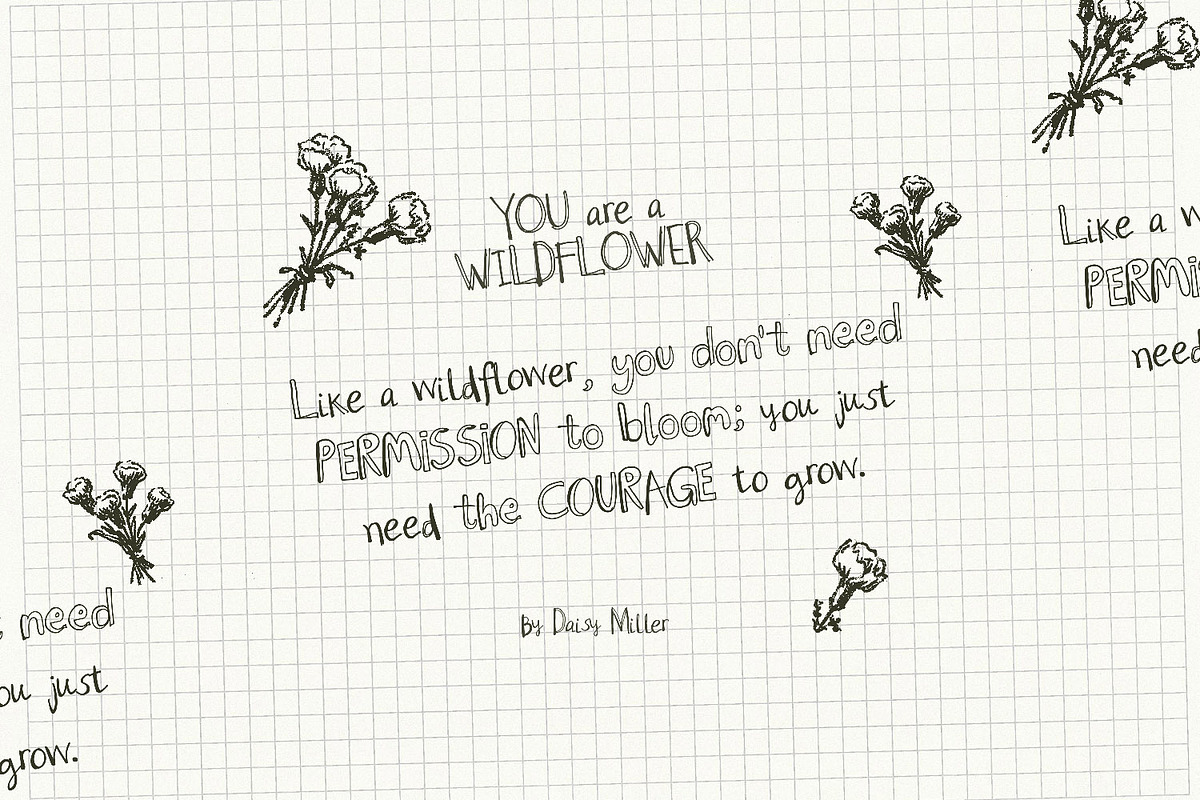 YOU are a
WILDFLOWER
Like a wildflower, you don't need
PERMiSSiON to bloom; you just
need the COURAGE to grow.
By Daisy Miller
Like a
PERMi
need
need
you just
grow.